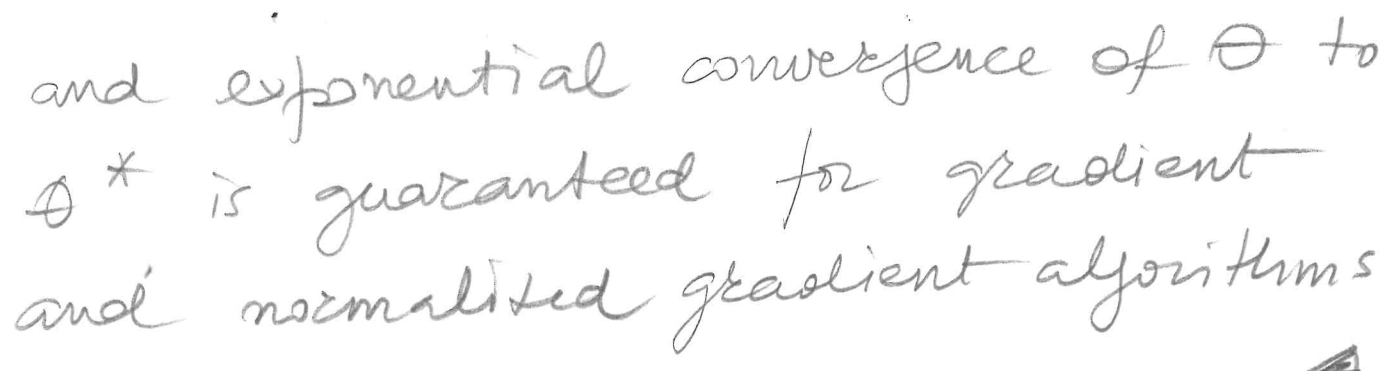 and exponential convergence of θ to
θ* is guaranteed for gradient
and normalized gradient algorithms